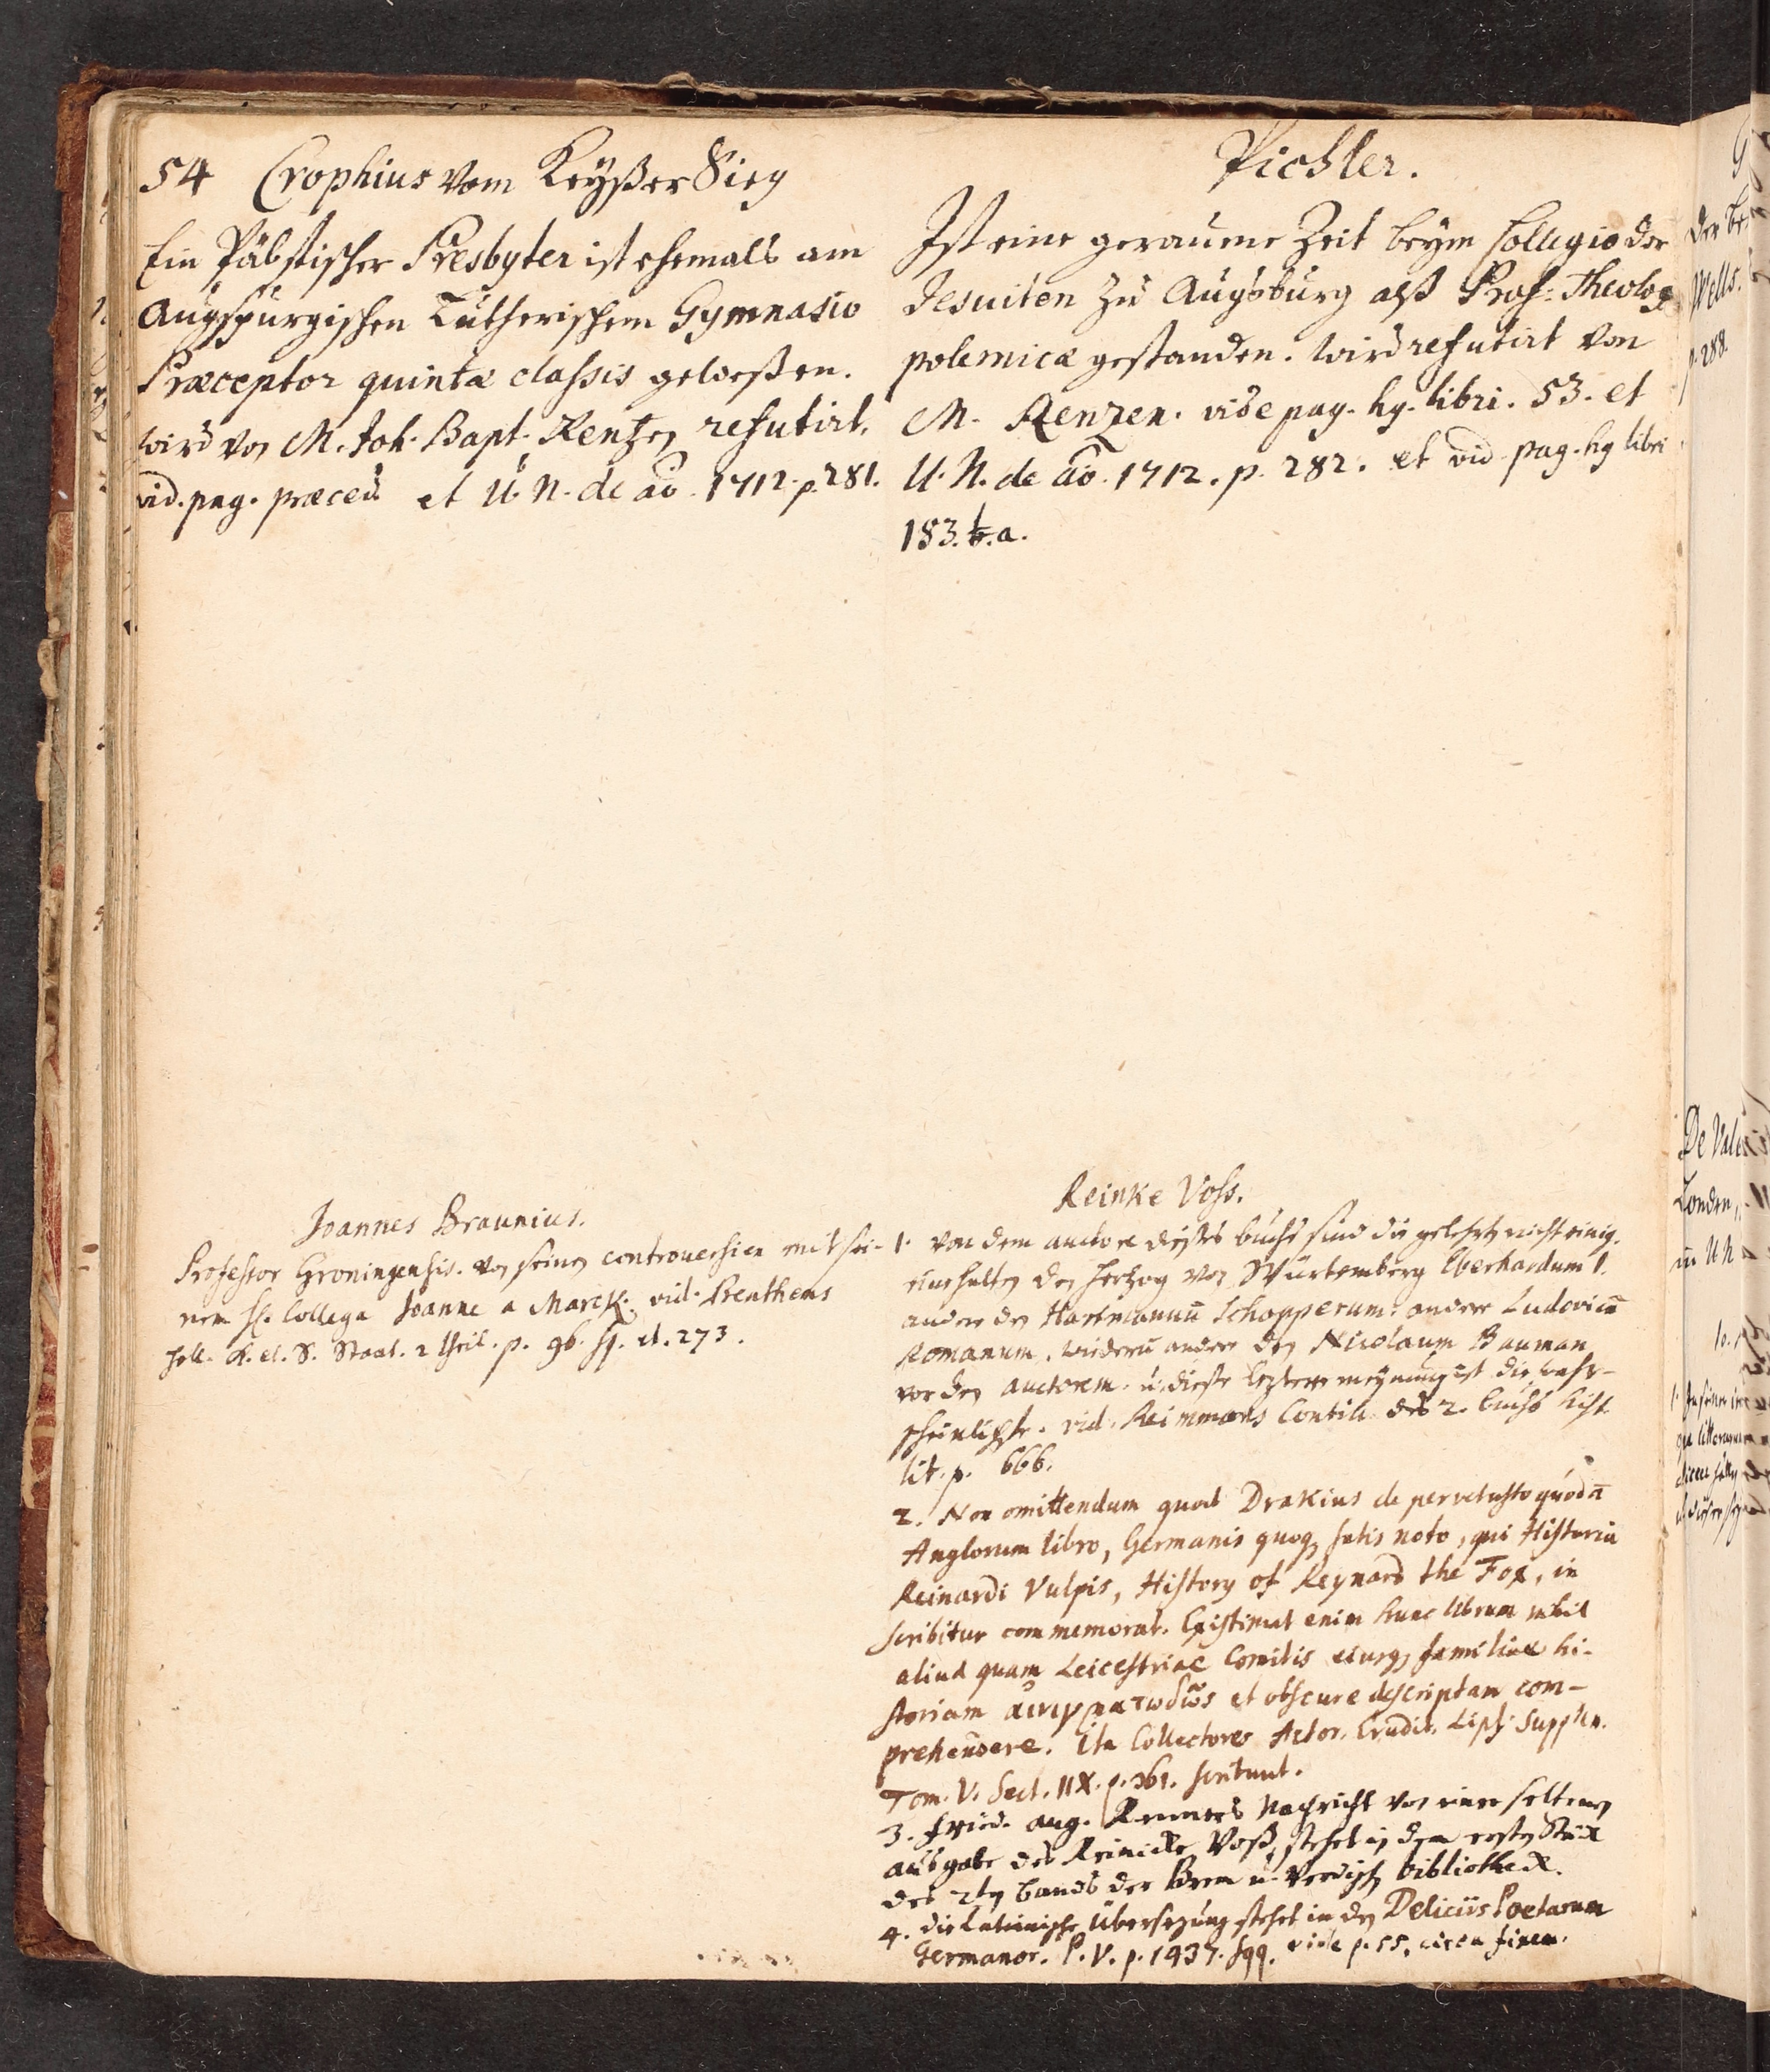 54 Crophius vom Keyßer Sieg
Ein Päbstischer Presbyter ist ehemals am
Augspurgischen Lutherischem Gymnasio
Præceptor quintæ classis geweßen.
wird von M. Joh. Bapt. Rentzen refutirt.
vid. pag. præced. et U. N. de ao. 1712. p. 281.
Pichler.
Ist eine geraume Zeit beym Collegio der
Jesuiten zu Augsburg alß Prof: Theolog
polemicæ gestanden. wird refutirt von
M. Renzen. vide pag. hg. libri. 53. et
U. N. de ao. 1712. p. 282. et vid. pag. hg libri
183. b. a.
Joannes Braunius.
Professor Groningensis. von seinen controversien mit sei-
nem H. Collega Joanne a Marck. vid. Benthems
Holl. K. et. S. Staat. 2 theil. p. 96. sq. et. 273.
Reinke Voss.
1. von dem auctore dießes buchs sind die gelehrten nicht einig.
eine halten den Hertzog von Würtemberg Eberhardum 1.
andere den Hartmannū Schopperum. andere Ludovicū
Romanum, wiederū andere den Nicolaum Bauman
vor den auctorem. u. dieße leztere meynung ist die wahr-
scheinlichste. vid. Reimmans Contin. des 2. buchs hist.
lit. p. 666.
2. Non omittendum quod Drakius de pervetusto quodā
Anglorum libro, Germanis quoq, satis noto, qui Historia
Reinardi Vulpis, History of Reynard the Fox, in
scribitur commemorat. Existimat enim hunc librum nihil
aliud quam Leicestriae Comitis eiusq, familiae hi-
storiam αινιγματωδῶς et obscure descriptam com-
prehendere. ita Collectores Actor. Erudit. Lips. Supplem.
Tom. V. Sect. IIX. p. 361. scribunt.
3. Fried. Aug. Nachricht von einer seltenen
ausgabe des Reinicke Voß, stehet in dem ersten Stück
des 2ten bands der Brem u. Verdisch bibliotheck.
4. die Lateinische Übersezung stehet in den Deliciis Poetarum
Germanor. P. V. p. 1437. sqq. vide p. 55. circa finem.
Wells.
p. 288